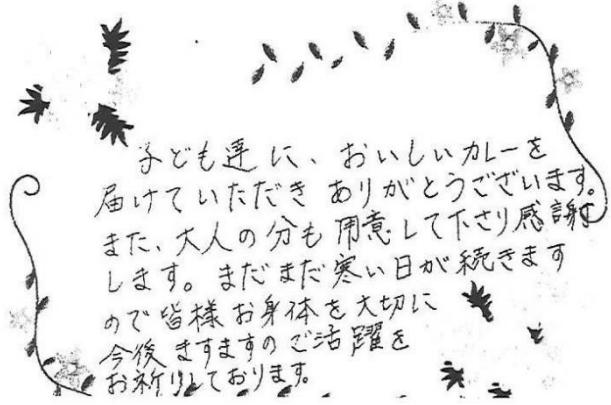 子ども達に、おいしいカレーを
届けていただきありがとうございます。
また、大人の分も用意して下さり感謝
します。まだまだ寒い日が続きます
ので皆様お身体を大切に
今後ますますのご活躍を
お祈りしております。